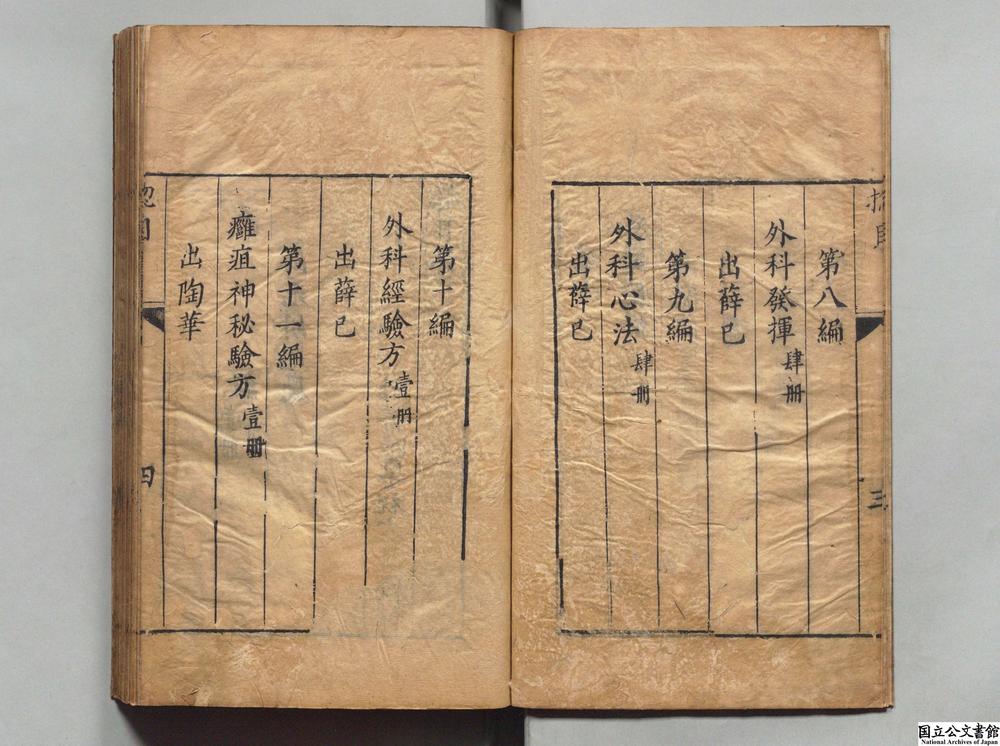 第八編
外科發揮 肆册
出薛已
第九編
外科心法 肆册
出薛已
三
第十編
外科經驗方 壹册
出薛已
第十一編
癰疽神秘驗方 壹册
出陶華
四
国立公文書館
National Archives of Japan